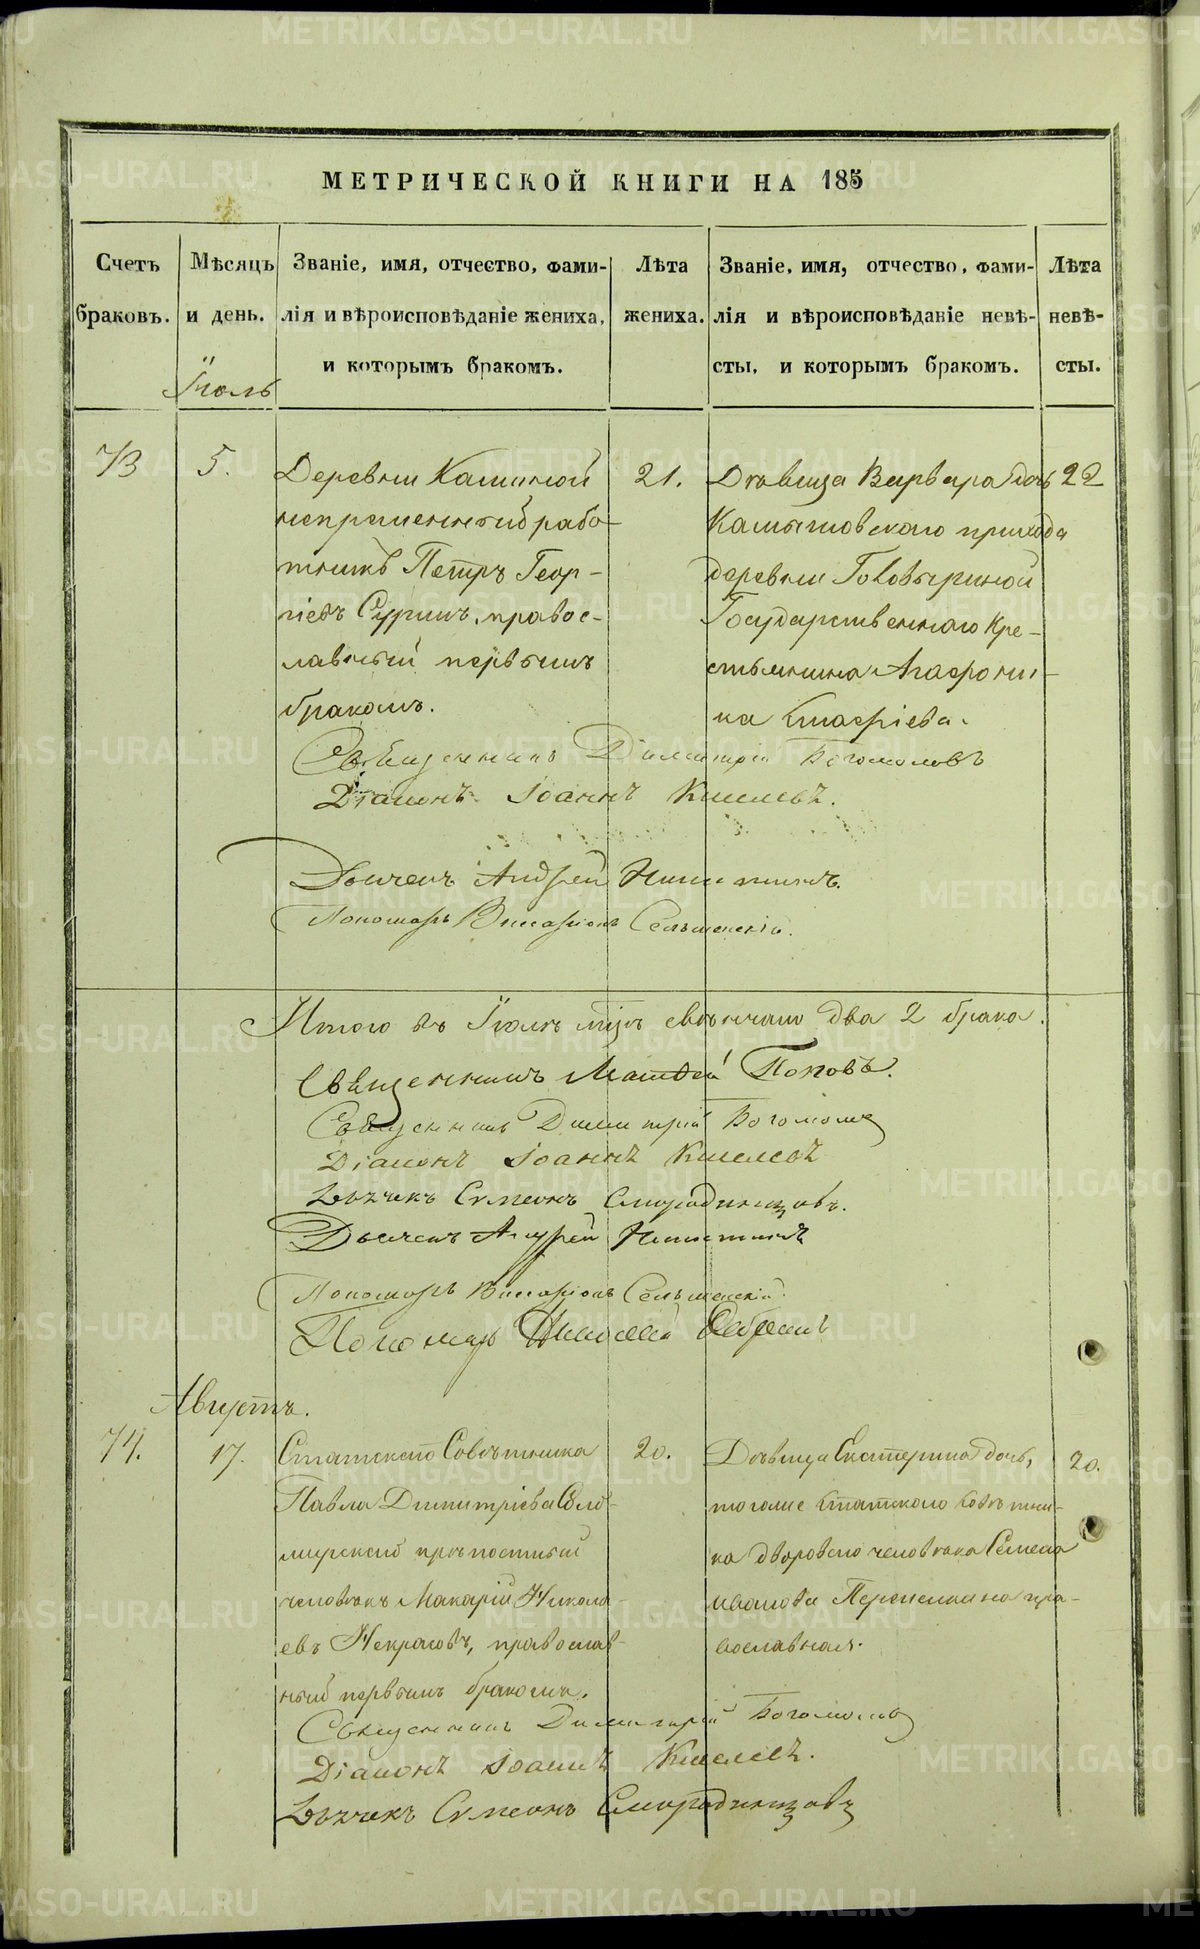 МЕТРИЧЕСКОЙ КНИГИ НА 185
Счетъ браковъ.
Мѣсяцъ и день.
Званіе, имя, отчество, фами-
лія и вѣроисповѣданіе жениха,
и которымъ бракомъ.
Лѣта жениха.
Званіе, имя, отчество, фами-
лія и вѣроисповѣданіе невѣ-
сты, и которымъ бракомъ.
Лѣта невѣ-
сты.
Іюль
73
5.
Деревни
непремѣнный рабо-
тникъ Петръ Геор-
гіевъ правос-
лавный первымъ
бракомъ.
21.
Дѣвица Варвара дочь
Камышловскаго прихода
деревни
Государственнаго Кре-
стьянина Агафони-
ка Евстафіева.
22
Священникъ Димитрій Богомоловъ
Діаконъ Іоаннъ Киселевъ.
Дьячекъ Андрей Никитинъ.
Пономарь Виссаріонъ Сельменскій.
Итого въ Іюлѣ мцѣ свѣнчано два 2 брака.
Священникъ Матѳей Поповъ.
Священникъ Димитрій Богомоловъ
Діаконъ Іоаннъ Киселевъ
Дьячекъ Симеонъ Смородинцовъ.
Дьячекъ Андрей Никитинъ
Пономарь Виссаріонъ Сельменскій.
Пономарь Николай
Августъ.
74.
17.
Статскаго Совѣтника
Павла Димитріева Соло-
мирскаго крѣпостный
человѣкъ Макарій Никола-
евъ Некрасовъ, православ-
ный первымъ бракомъ.
20.
Дѣвица Екатерина дочь,
тогоже Статскаго Совѣтни-
ка двороваго человѣка Семена
Иванова пра-
вославная.
20.
Священникъ Димитрій Богомоловъ
Діаконъ Іоаннъ Киселевъ.
Дьячекъ Симеонъ Смородинцовъ
METRIKI.GASO-URAL.RU